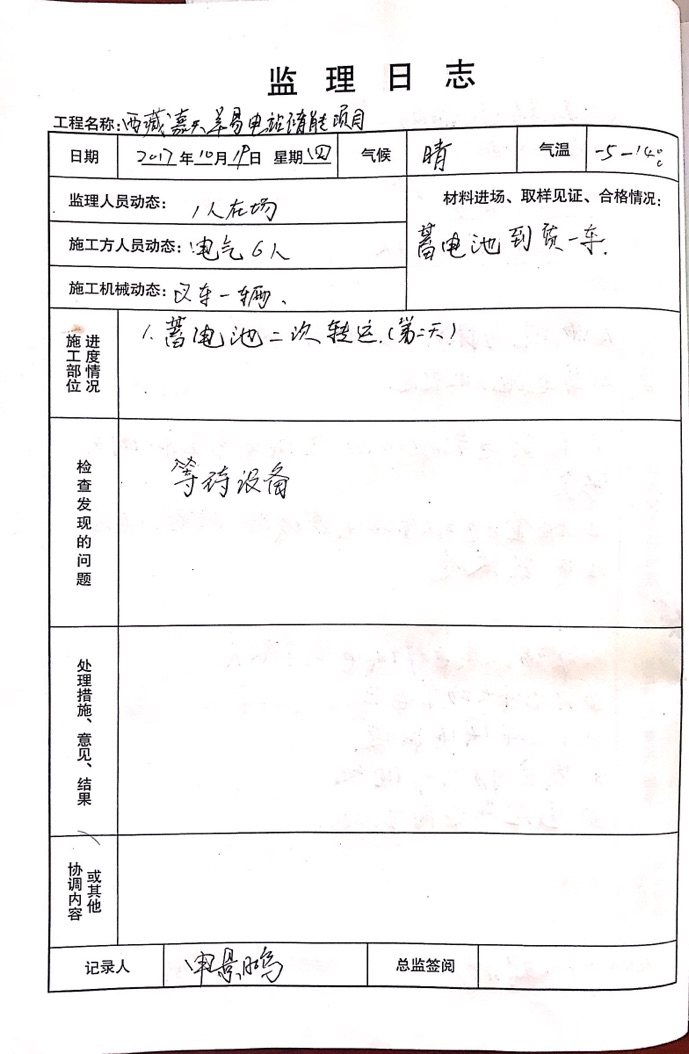 监理日志
工程名称:西藏嘉天羊易电站储能项目
日期 2017年10月19日 星期四 气候 晴 气温 -5-14℃
监理人员动态: 1人在场
材料进场、取样见证、合格情况:
施工方人员动态: 电气6人
蓄电池到货一车.
施工机械动态: 叉车一辆、
施工部位
进度情况
1.蓄电池二次转运.(第二天)
检查发现的问题
等待设备
处理措施、意见、结果
协调内容
或其他
记录人 申景鹏 总监签阅